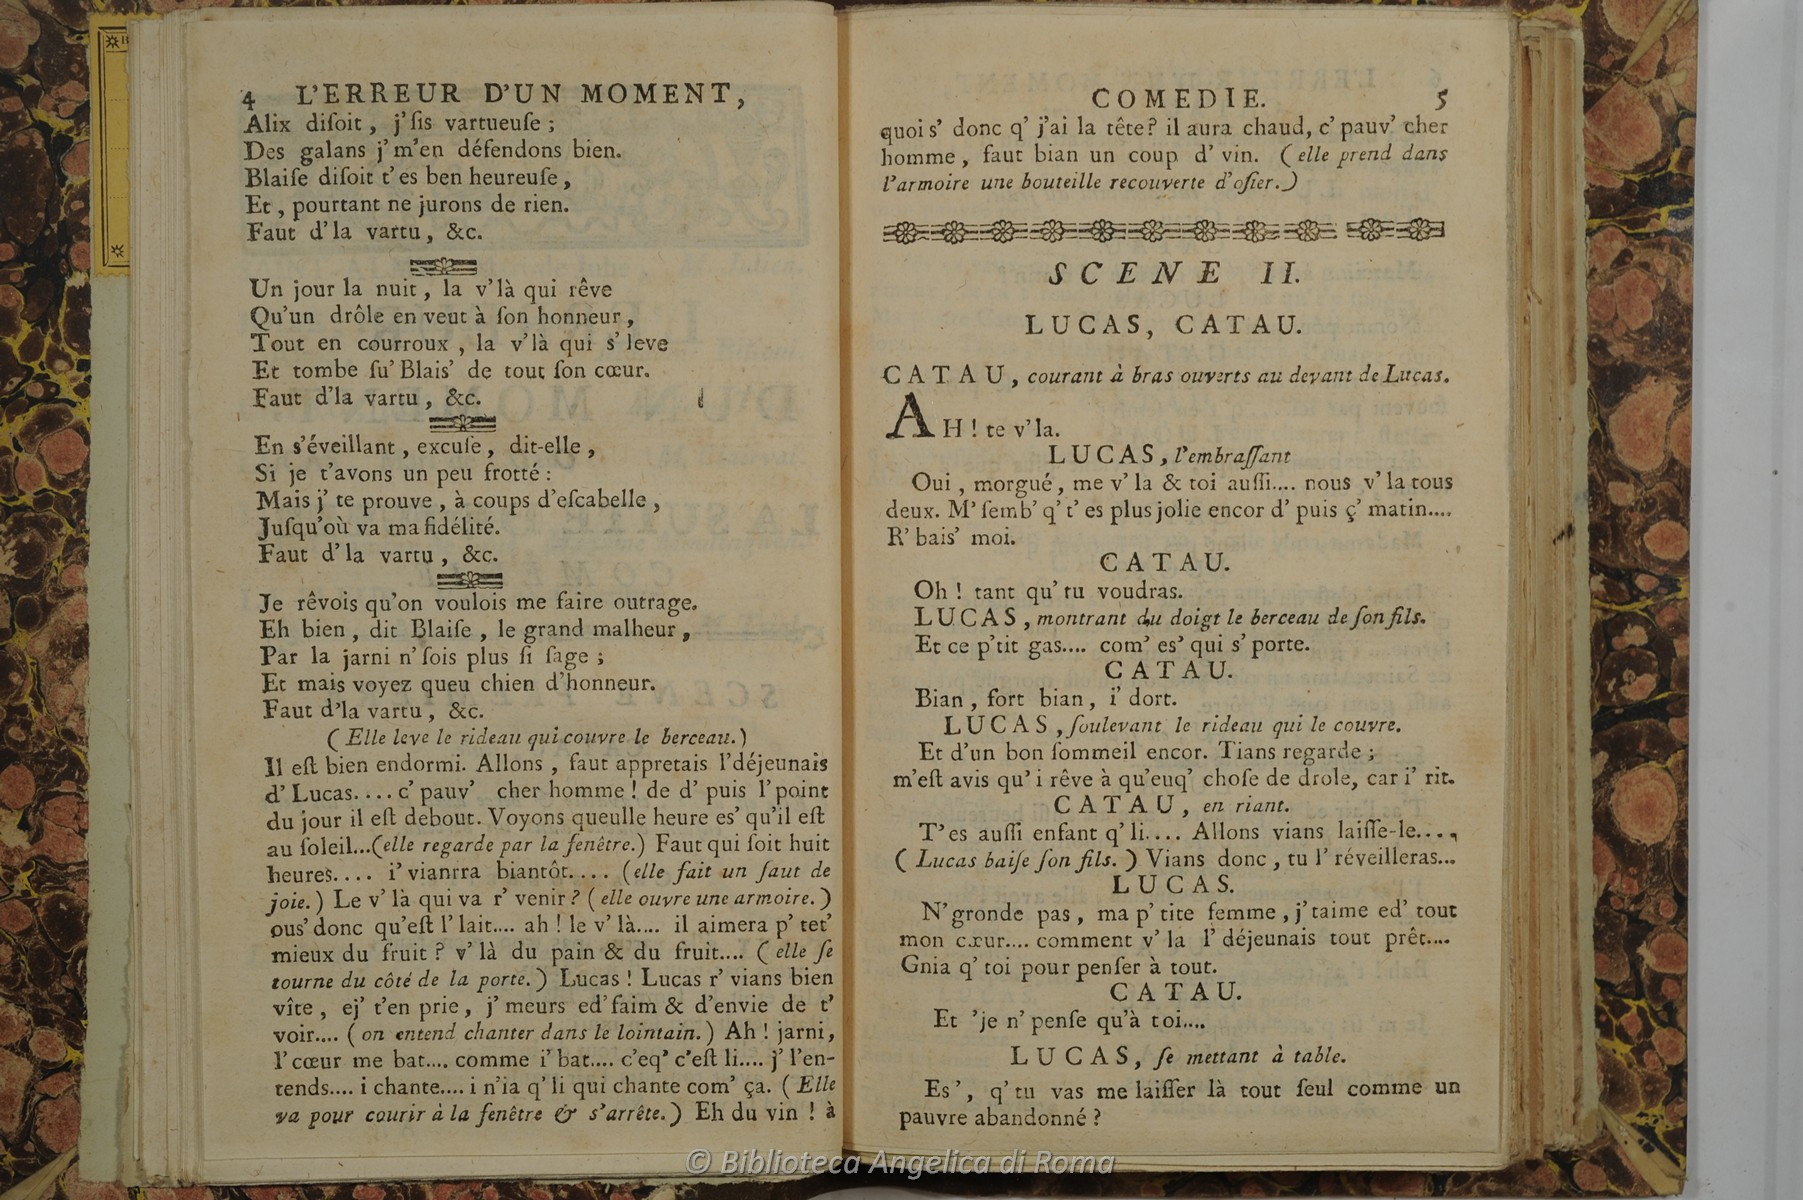 4 L'ERREUR D'UN MOMENT,
Alix diſoit, j'ſis vartueuſe ;
Des galans j' m'en défendons bien.
Blaiſe diſoit t'es ben heureuſe,
Et, pourtant ne jurons de rien.
Faut d'la vartu, &c.
Un jour la nuit, la v'là qui rêve
Qu'un drôle en veut à ſon honneur,
Tout en courroux, la v'là qui s'leve
Et tombe ſu' Blais' de tout ſon cœur.
Faut d'la vartu, &c.
En s'éveillant, excuſe, dit-elle,
Si je t'avons un peu frotté :
Mais j' te prouve, à coups d'eſcabelle,
Juſqu'où va ma fidélité.
Faut d'la vartu, &c.
Je rêvois qu'on voulois me faire outrage.
Eh bien, dit Blaiſe, le grand malheur,
Par la jarni n'ſois plus ſi ſage ;
Et mais voyez queu chien d'honneur.
Faut d'la vartu, &c.
( Elle leve le rideau qui couvre le berceau.)
Il eſt bien endormi. Allons, faut appretais l'déjeunais
d' Lucas.... c' pauv' cher homme ! de d' puis l'point
du jour il eſt debout. Voyons queulle heure es' qu'il eſt
au ſoleil...(elle regarde par la fenêtre.) Faut qui ſoit huit
heures.... i' vianrra biantôt.... (elle fait un ſaut de
joie.) Le v' là qui va r' venir ? (elle ouvre une armoire.)
ous' donc qu'eſt l' lait.... ah ! le v' là.... il aimera p' tet'
mieux du fruit ? v' là du pain & du fruit.... ( elle ſe
tourne du côté de la porte.) Lucas ! Lucas r' vians bien
vîte, ej' t'en prie, j' meurs ed' faim & d'envie de t'
voir.... ( on entend chanter dans le lointain.) Ah ! jarni,
l'cœur me bat.... comme i' bat.... c'eq' c'eſt li.... j' l'en-
tends.... i chante.... i n'ia q' li qui chante com' ça. ( Elle
va pour courir à la fenêtre & s'arrête.) Eh du vin ! à
COMEDIE. 5
quois' donc q' j'ai la tête ? il aura chaud, c' pauv' cher
homme, faut bian un coup d' vin. ( elle prend dans
l'armoire une bouteille recouverte d'oſier.)
SCENE II.
LUCAS, CATAU.
CATAU, courant à bras ouverts au devant de Lucas.
AH ! te v'la.
LUCAS, l'embraſſant
Oui, morgué, me v' la & toi auſſi.... nous v' la tous
deux. M' ſemb' q' t' es plus jolie encor d' puis ç' matin....
R' bais' moi.
CATAU.
Oh ! tant qu' tu voudras.
LUCAS, montrant du doigt le berceau de ſon fils.
Et ce p'tit gas.... com' es' qui s' porte.
CATAU.
Bian, fort bian, i' dort.
LUCAS, ſoulevant le rideau qui le couvre.
Et d'un bon ſommeil encor. Tians regarde ;
m'eſt avis qu' i rêve à qu'euq' choſe de drole, car i' rit.
CATAU, en riant.
T'es auſſi enfant q' li.... Allons vians laiſſe-le....
( Lucas baiſe ſon fils. ) Vians donc, tu l' réveilleras...
LUCAS.
N' gronde pas, ma p' tite femme, j' taime ed' tout
mon cœur.... comment v' la l' déjeunais tout prêt....
Gnia q' toi pour penſer à tout.
CATAU.
Et 'je n' penſe qu'à toi....
LUCAS, ſe mettant à table.
Es', q' tu vas me laiſſer là tout ſeul comme un
pauvre abandonné ?
© Biblioteca Angelica di Roma